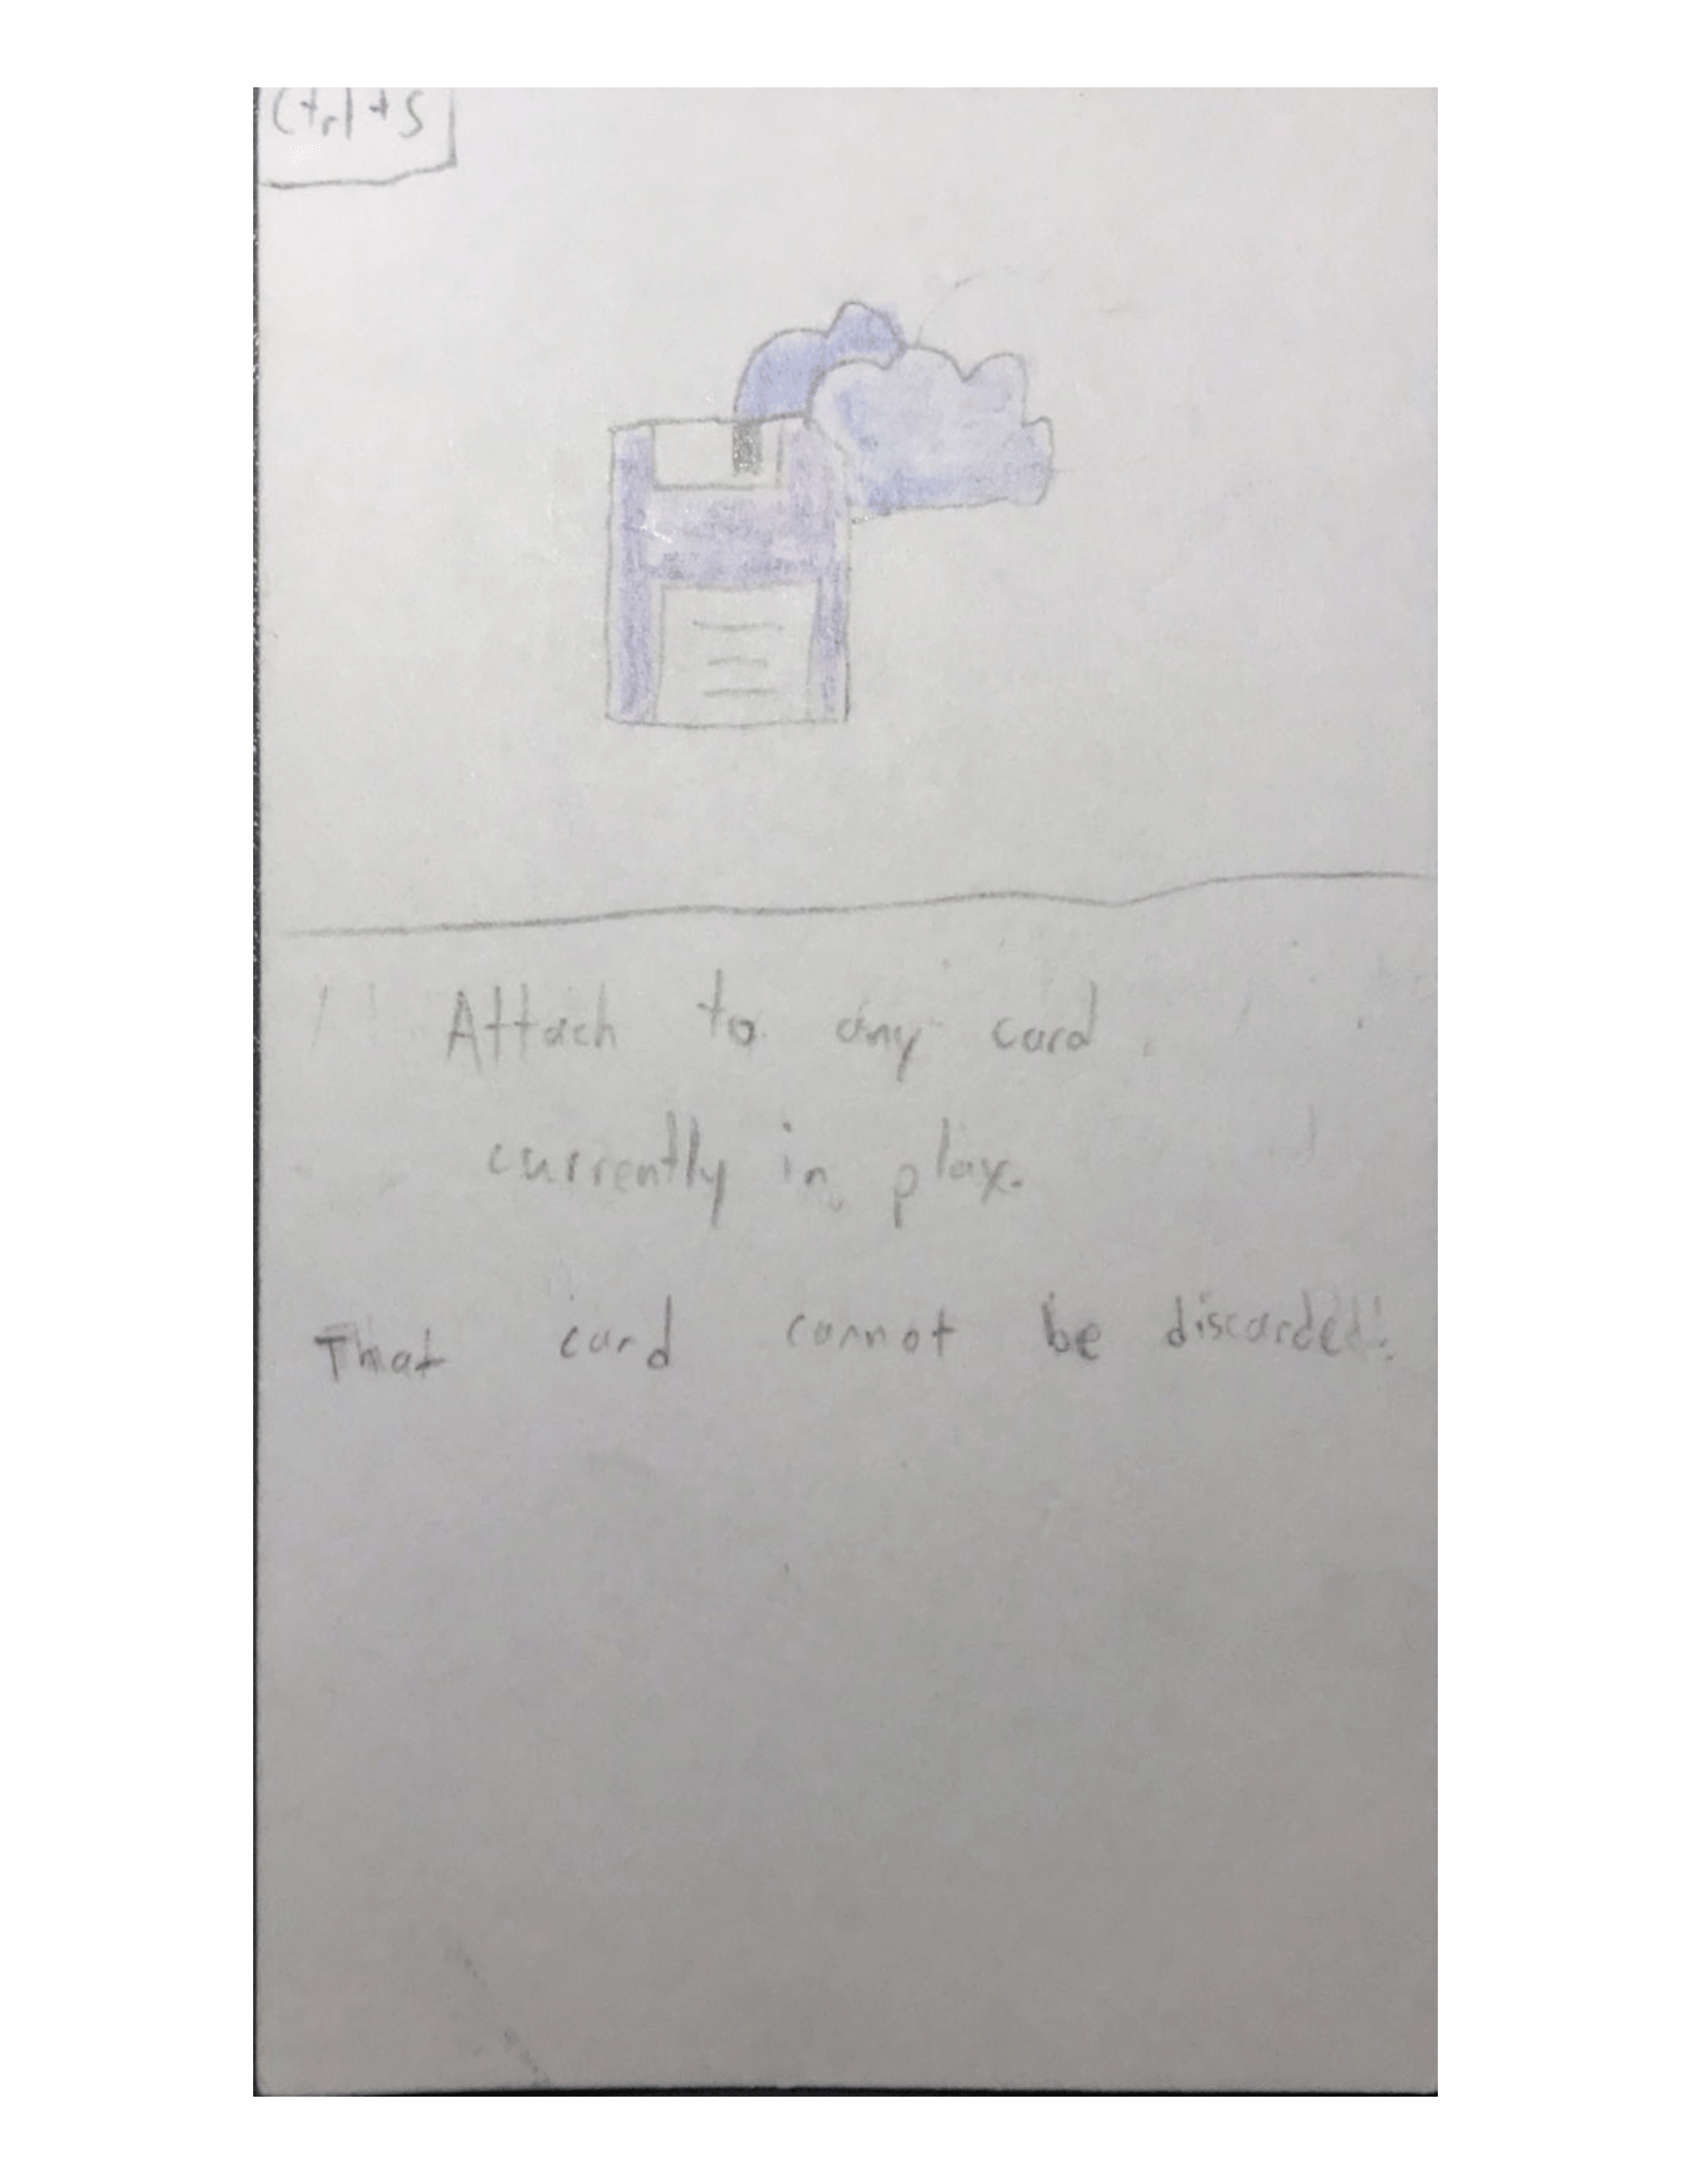 Ctrl+S
Attach to any card
currently in play.
That card cannot be discarded!